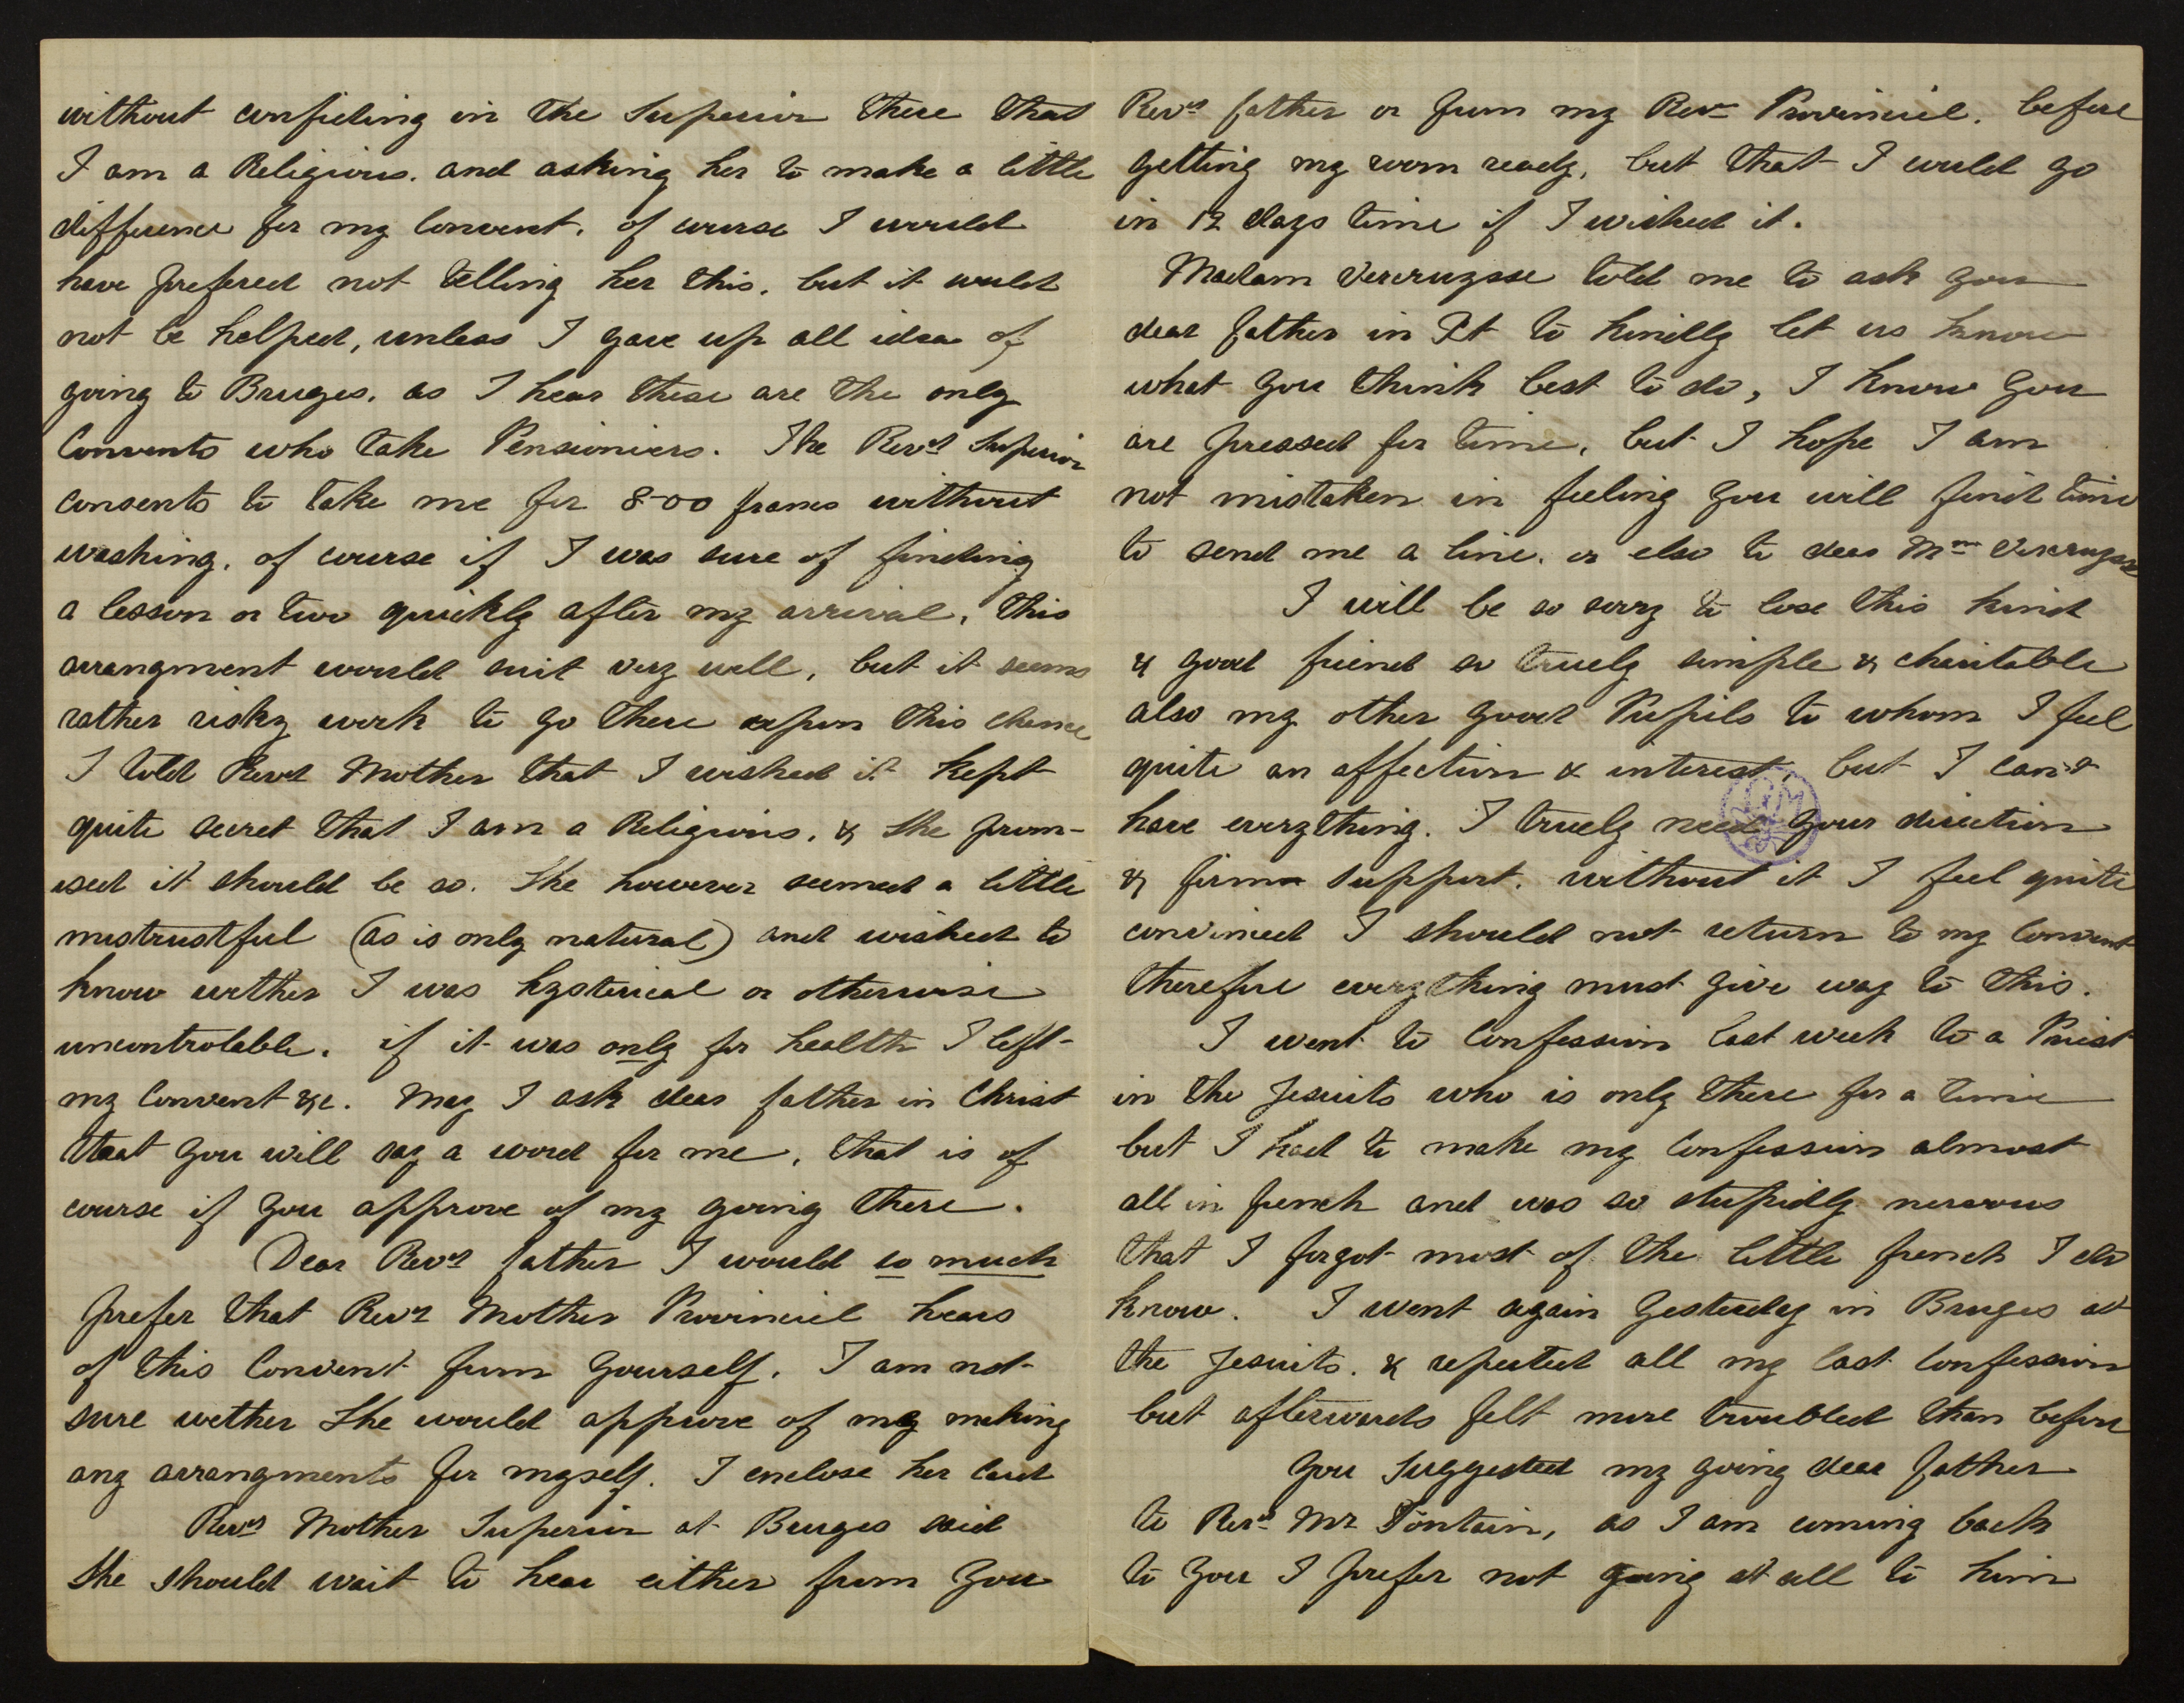 without confiding in the Superior there that
I am a Religious. and asking her to make a little
difference for my Convent. of course I would
have prefered not telling her this. but it would
not be helped, unless I gave up all idea of
going to Bruges. as I hear these are the only
Convents who take Pensioniers. The Revd Superior
consents to take me for 800 francs without
washing. of course if I was sure of finding
a lesson or two quickly after my arrival, this
arrangment would suit very well, but it seems
rather risky work to go there upon this chance
I told Revd Mother that I wished it kept
quite secret that I am a Religious. & she prom-
ised it should be so. She however seemed a little
mistrustful (as is only natural) and wished to
know wether I was hysterical or otherwise
uncontrolable. if it was only for health I left
my Convent &c. May I ask dear father in Christ
that you will say a word for me, that is of
course if you approve of my going there.
Dear Revd father I would so much
prefer that Revd Mother Provincial hears
of this Convent from yourself. I am not
sure wether she would approve of my making
any arrangments for myself. I enclose her card
Revd Mother Superior at Bruges said
she should wait to hear either from you
Revd father or from my Revd Provincial. before
getting my room ready, but that I would go
in 12 days time if I wished it.
Madam Vercruysse told me to ask you
dear father in Xt to kindly let us know
what you think best to do, I know you
are pressed for time, but I hope I am
not mistaken in feeling you will find time
to send me a line. or else to dear Mme Vercruysse
I will be so sorry to lose this kind
& good friend so truely simple & charitable
also my other good Pupils to whom I feel
quite an affection & interest, but I can't
have everything. I truely need your direction
& firm support. without it I feel quite
convinced I should not return to my Convent
therefore everything must give way to this.
I went to Confession last week to a Priest
in the Jesuits who is only there for a time
but I had to make my Confession almost
all in french and was so stupidly nervous
that I forgot most of the little french I do
know. I went again yesterday in Bruges at
the Jesuits. & repeated all my last Confession
but afterwards felt more troubled than before
You suggested my going dear father
to Revd Mr Fontain, as I am coming back
to you I prefer not going at all to him